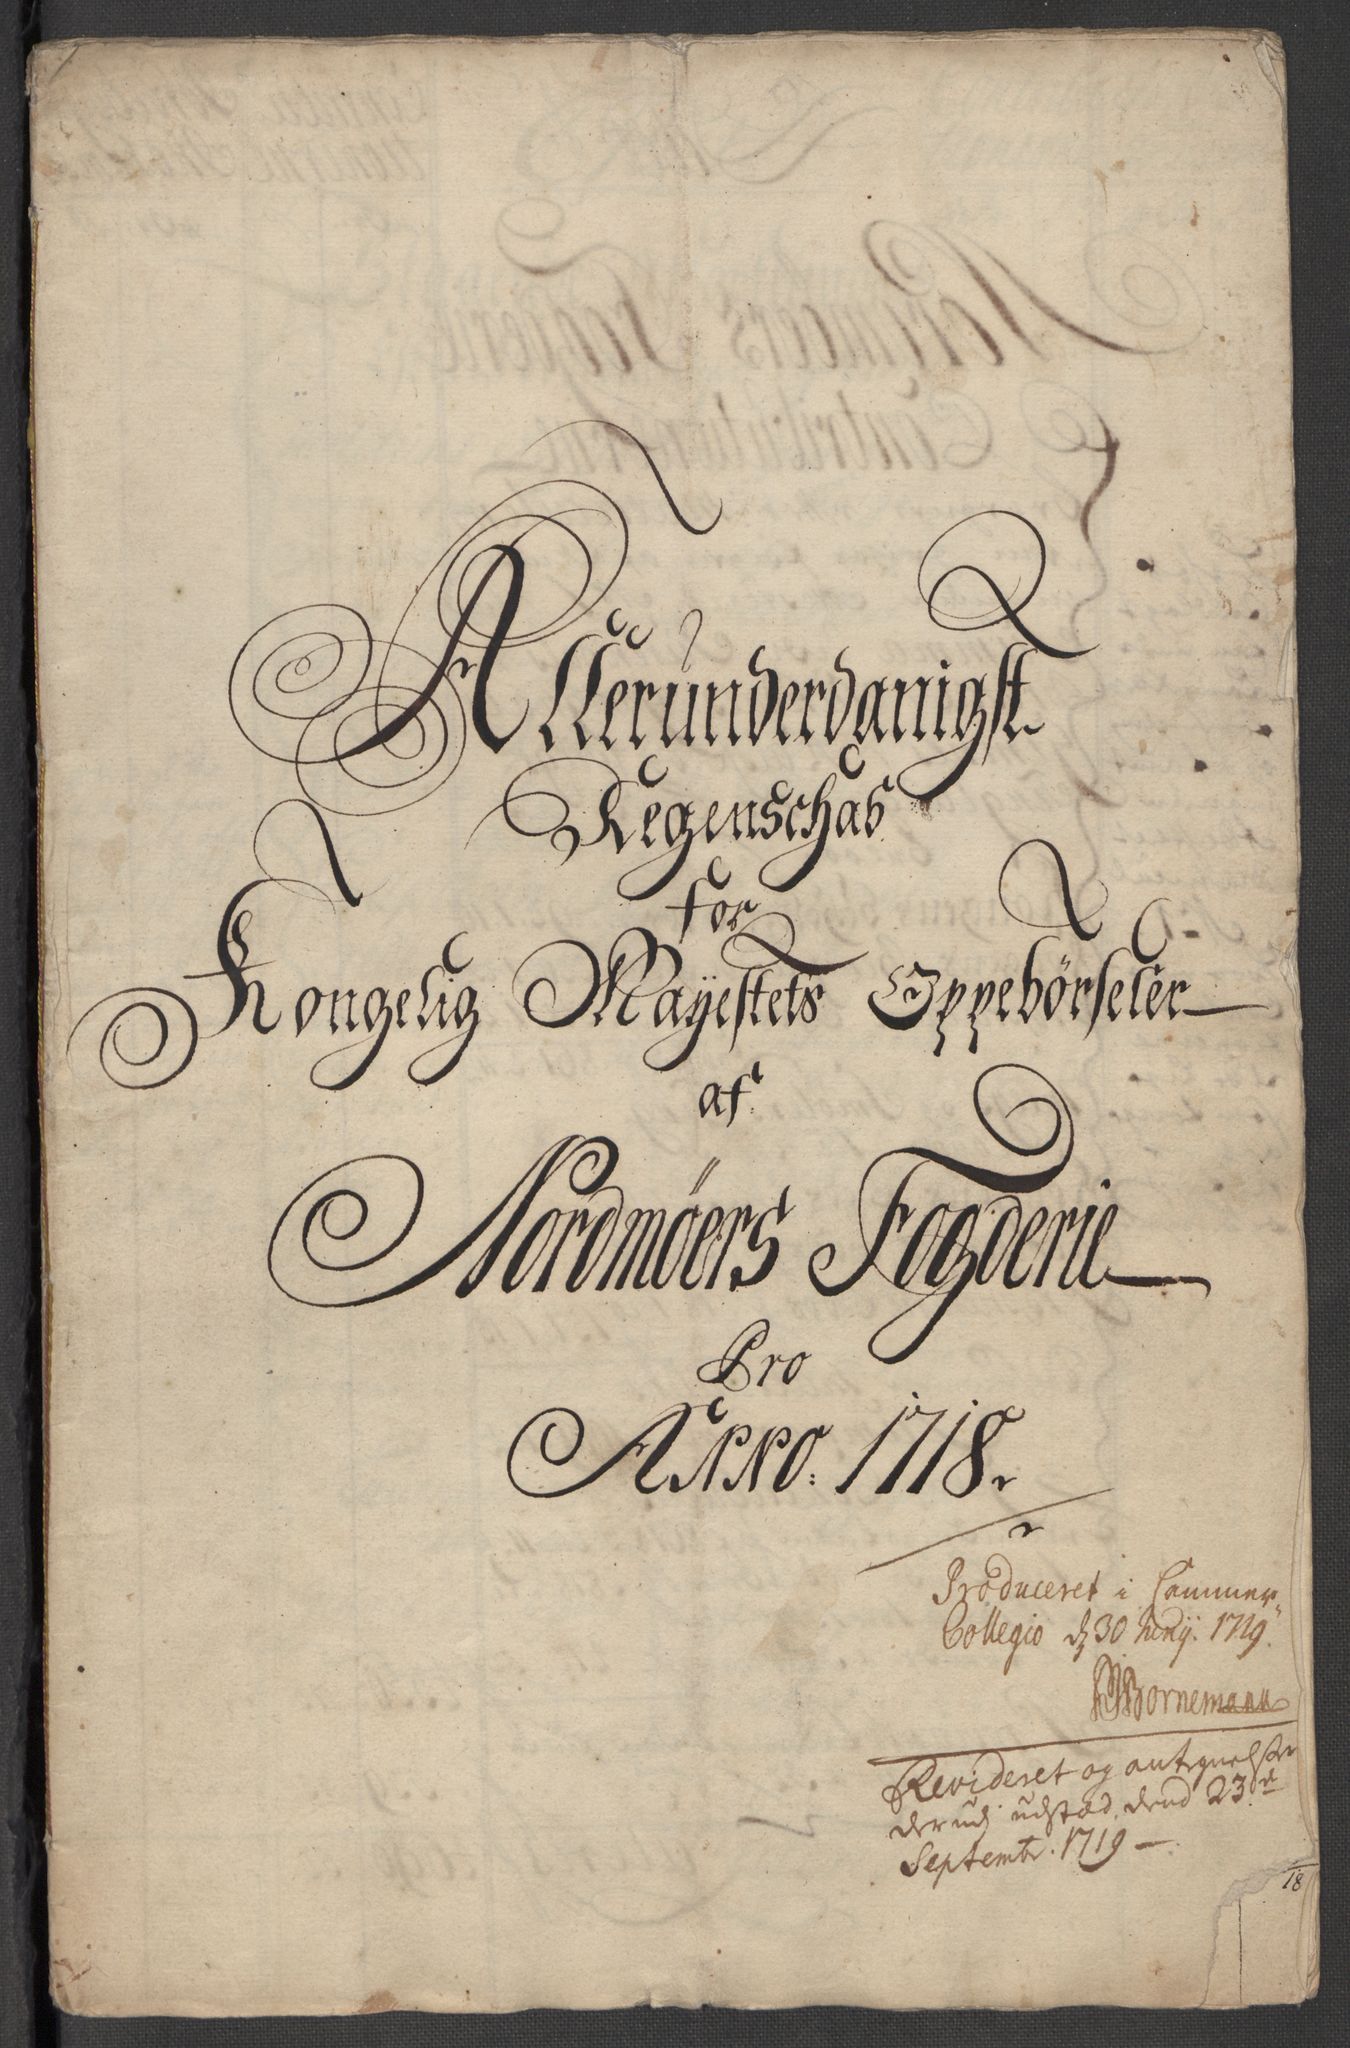 Allerunderdanigst
Regenschab
for
Kongelig Mayestets Oppebörseler
af
Nordmöers Fogderie
Pro
Anno. 1718.
Produceret i Cammer
Collegio d 30 Junij. 1719.
Bornemann
Revideret og antegnelser
derudj udstæd, dend 23de
Septembr. 1719
18